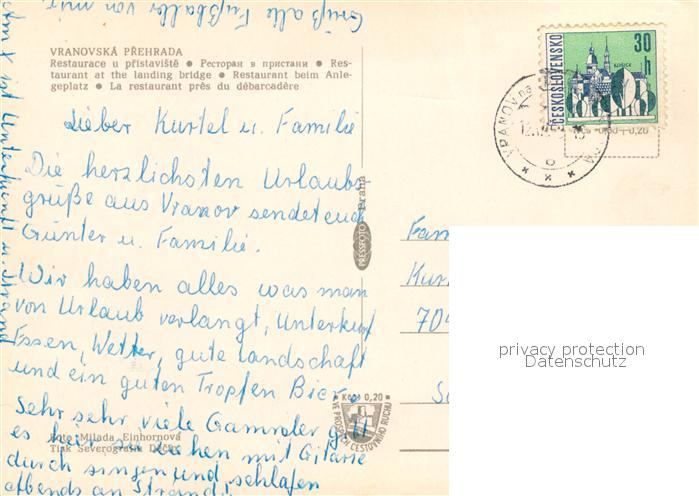 Grüß alle Fußballer von mir
VRANOVSKÁ PŘEHRADA
Restaurace u přístaviště ● Ресторан в пристани ● Res-
taurant at the landing bridge ● Restaurant beim Anle-
geplatz ● La restaurant près du débarcadère
Lieber Kurtel u. Familie
Die herzlichsten Urlaubs
grüße aus Vranov sendet
Günter u. Familie.
Wir haben alles was man
von Urlaub verlangt, Unterkunf
Essen, Wetter, gute Landschaft
und ein guten Tropfen Bier.
Sehr sehr viele Gammler gi
es hier sie ziehen mit Gitarre
durch singen und schlafen
abends an Strand!
ist Unterkunft u. Strand
Foto Milada Einhornová
Tisk Severografia Děčín
PRESSFOTO Praha
Kčs 0,20
VE PROSPĚCH CESTOVNÍHO RUCHU
ČESKOSLOVENSKO
30 h
KOŠICE
VRANOV
0,20
Fam
Kur
70
privacy protection
Datenschutz